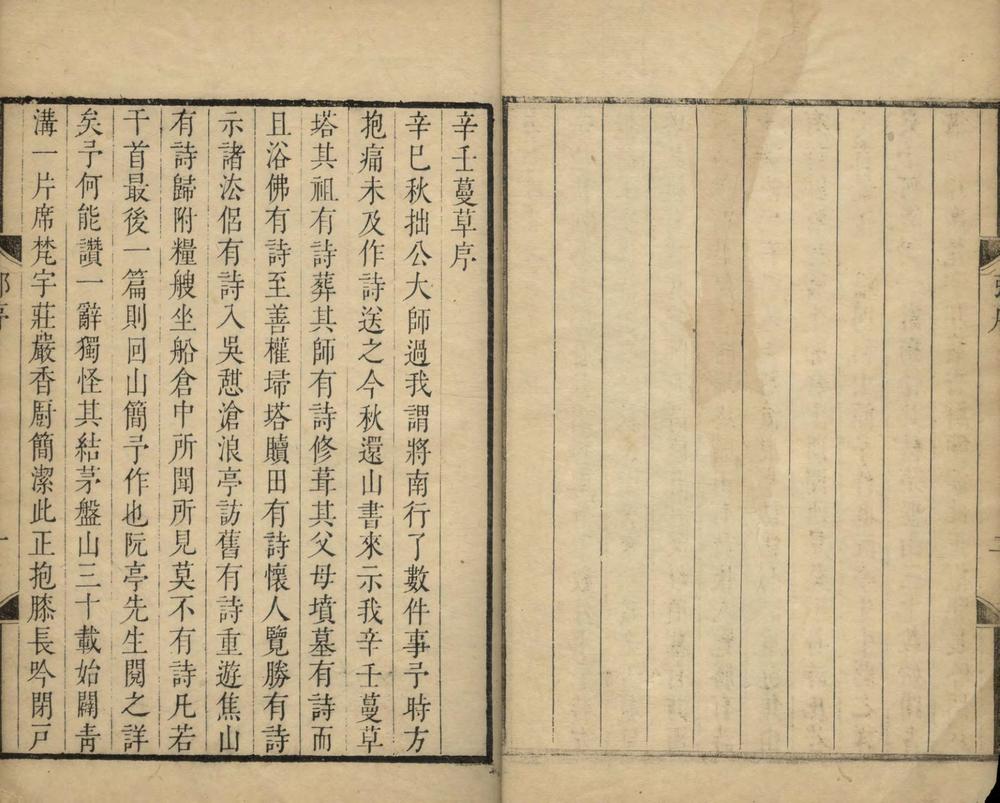 辛壬蔓草序
辛巳秋拙公大師過我謂將南行了數件事予時方
抱痛未及作詩送之今秋還山書來示我辛壬蔓草
塔其祖有詩葬其師有詩修葺其父母墳墓有詩而
且浴佛有詩至善權埽塔贖田有詩懷人覽勝有詩
示諸法侶有詩入吳憇滄浪亭訪舊有詩重遊焦山
有詩歸附糧艘坐船倉中所聞所見莫不有詩凡若
干首最後一篇則回山簡予作也阮亭先生閱之詳
矣予何能讚一辭獨怪其結茅盤山三十載始闢靑
溝一片席梵宇莊嚴香厨簡潔此正抱膝長吟閉戸